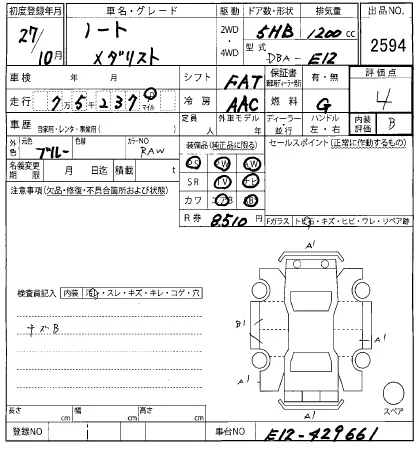 初度登録年月 車名・グレード 駆動 ドア数・形状 排気量 出品No.
27/10月 ノート メダリスト 2WD・4WD 5HB 1200cc 2594
型式 DBA-E12
車検 年 月 シフト FAT 保証書 有・無 評価点
走行 7万5千237km マイル 冷房 AAC 燃料 G 4
車歴 自家用・レンタ・事業用( ) 定員 人 外車モデル 年 ディーラー・並行 ハンドル 左・右 内装評価 B
外色 元色 ブルー 色替 カラーNO RAW 装備品(純正品に限る) セールスポイント(正常に作動するもの)
PS PW SW
名義変更期限 月 日迄 積載 t SR TV ナビ
注意事項(欠品・修復・不具合箇所および状態) カワ エアB
R券 8510円 Fガラス トビ石・キズ・ヒビ・ワレ・リペア跡
A1
検査員記入 内装 汚れ・スレ・キズ・キレ・コゲ・穴
キズB
B1
A1
A1
A1
スペア
長さ cm 幅 cm 高さ cm
登録NO 車台NO E12-429661